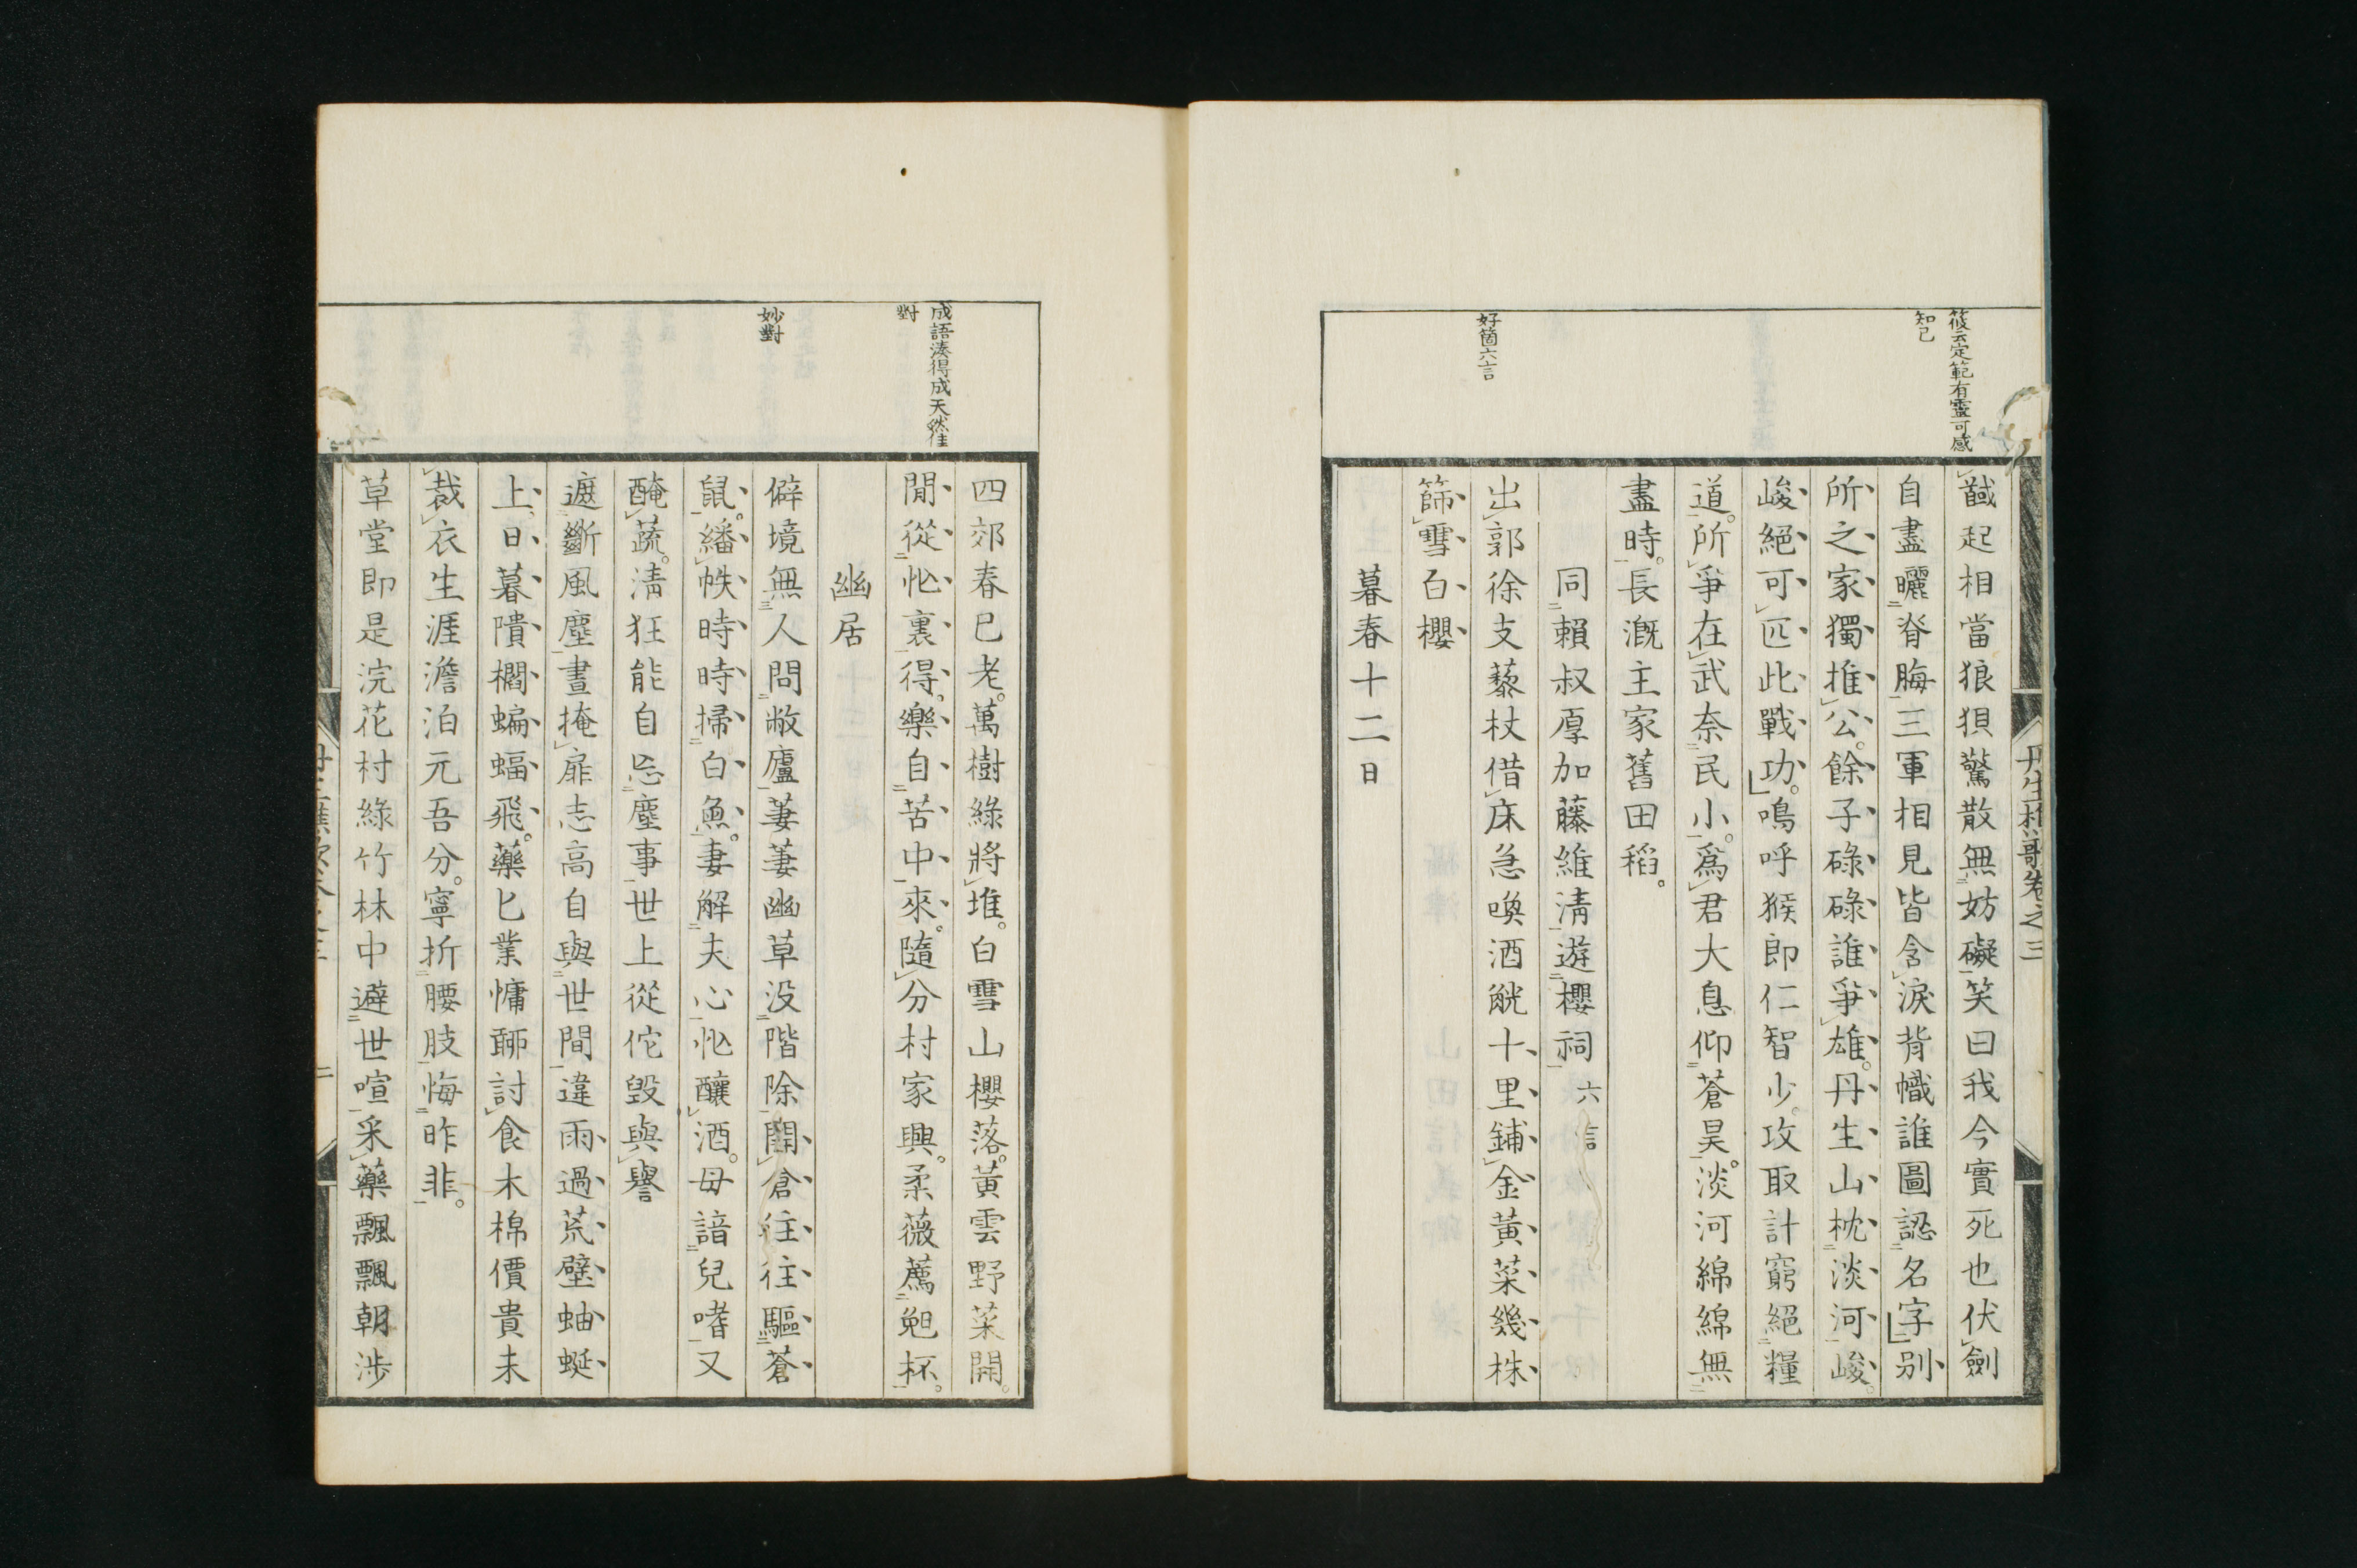 丹生樵歌卷之三
筱云定範有靈可感
知己
馘起相當狼狽驚散無妨礙笑曰我今實死也伏劍
自盡曬脊脢三軍相見皆含淚背幟誰圖認名字別
所之家獨推公餘子碌碌誰爭雄丹生山枕淡河峻
峻絕可匹此戰功鳴呼猴郎仁智少攻取計窮絕糧
道所爭在武奈民小爲君大息仰蒼昊淡河綿綿無
盡時長漑主家舊田稻
同賴叔厚加藤維清遊櫻祠 六言
好箇六言
出郭徐支藜杖借床急喚酒觥十里鋪金黃菜幾株
篩雪白櫻
暮春十二日
四郊春已老萬樹綠將堆白雪山櫻落黃雲野菜開
成語湊得成天然佳
對
閒從忙裏得樂自苦中來隨分村家興柔薇薦匏杯
幽居
妙對
僻境無人問敝廬萋萋幽草没階除開倉往往驅蒼
鼠繙帙時時掃白魚妻解夫心忙釀酒毋諳兒嗜又
醃蔬淸狂能自忘塵事世上從佗毀與譽
遮斷風塵晝掩扉志高自與世間違雨過荒壁蚰蜒
上日暮隤櫊蝙蝠飛藥匕業慵聊討食木棉價貴未
裁衣生涯澹泊元吾分寧折腰肢悔昨非
草堂即是浣花村綠竹林中避世喧采藥飄飄朝涉
二